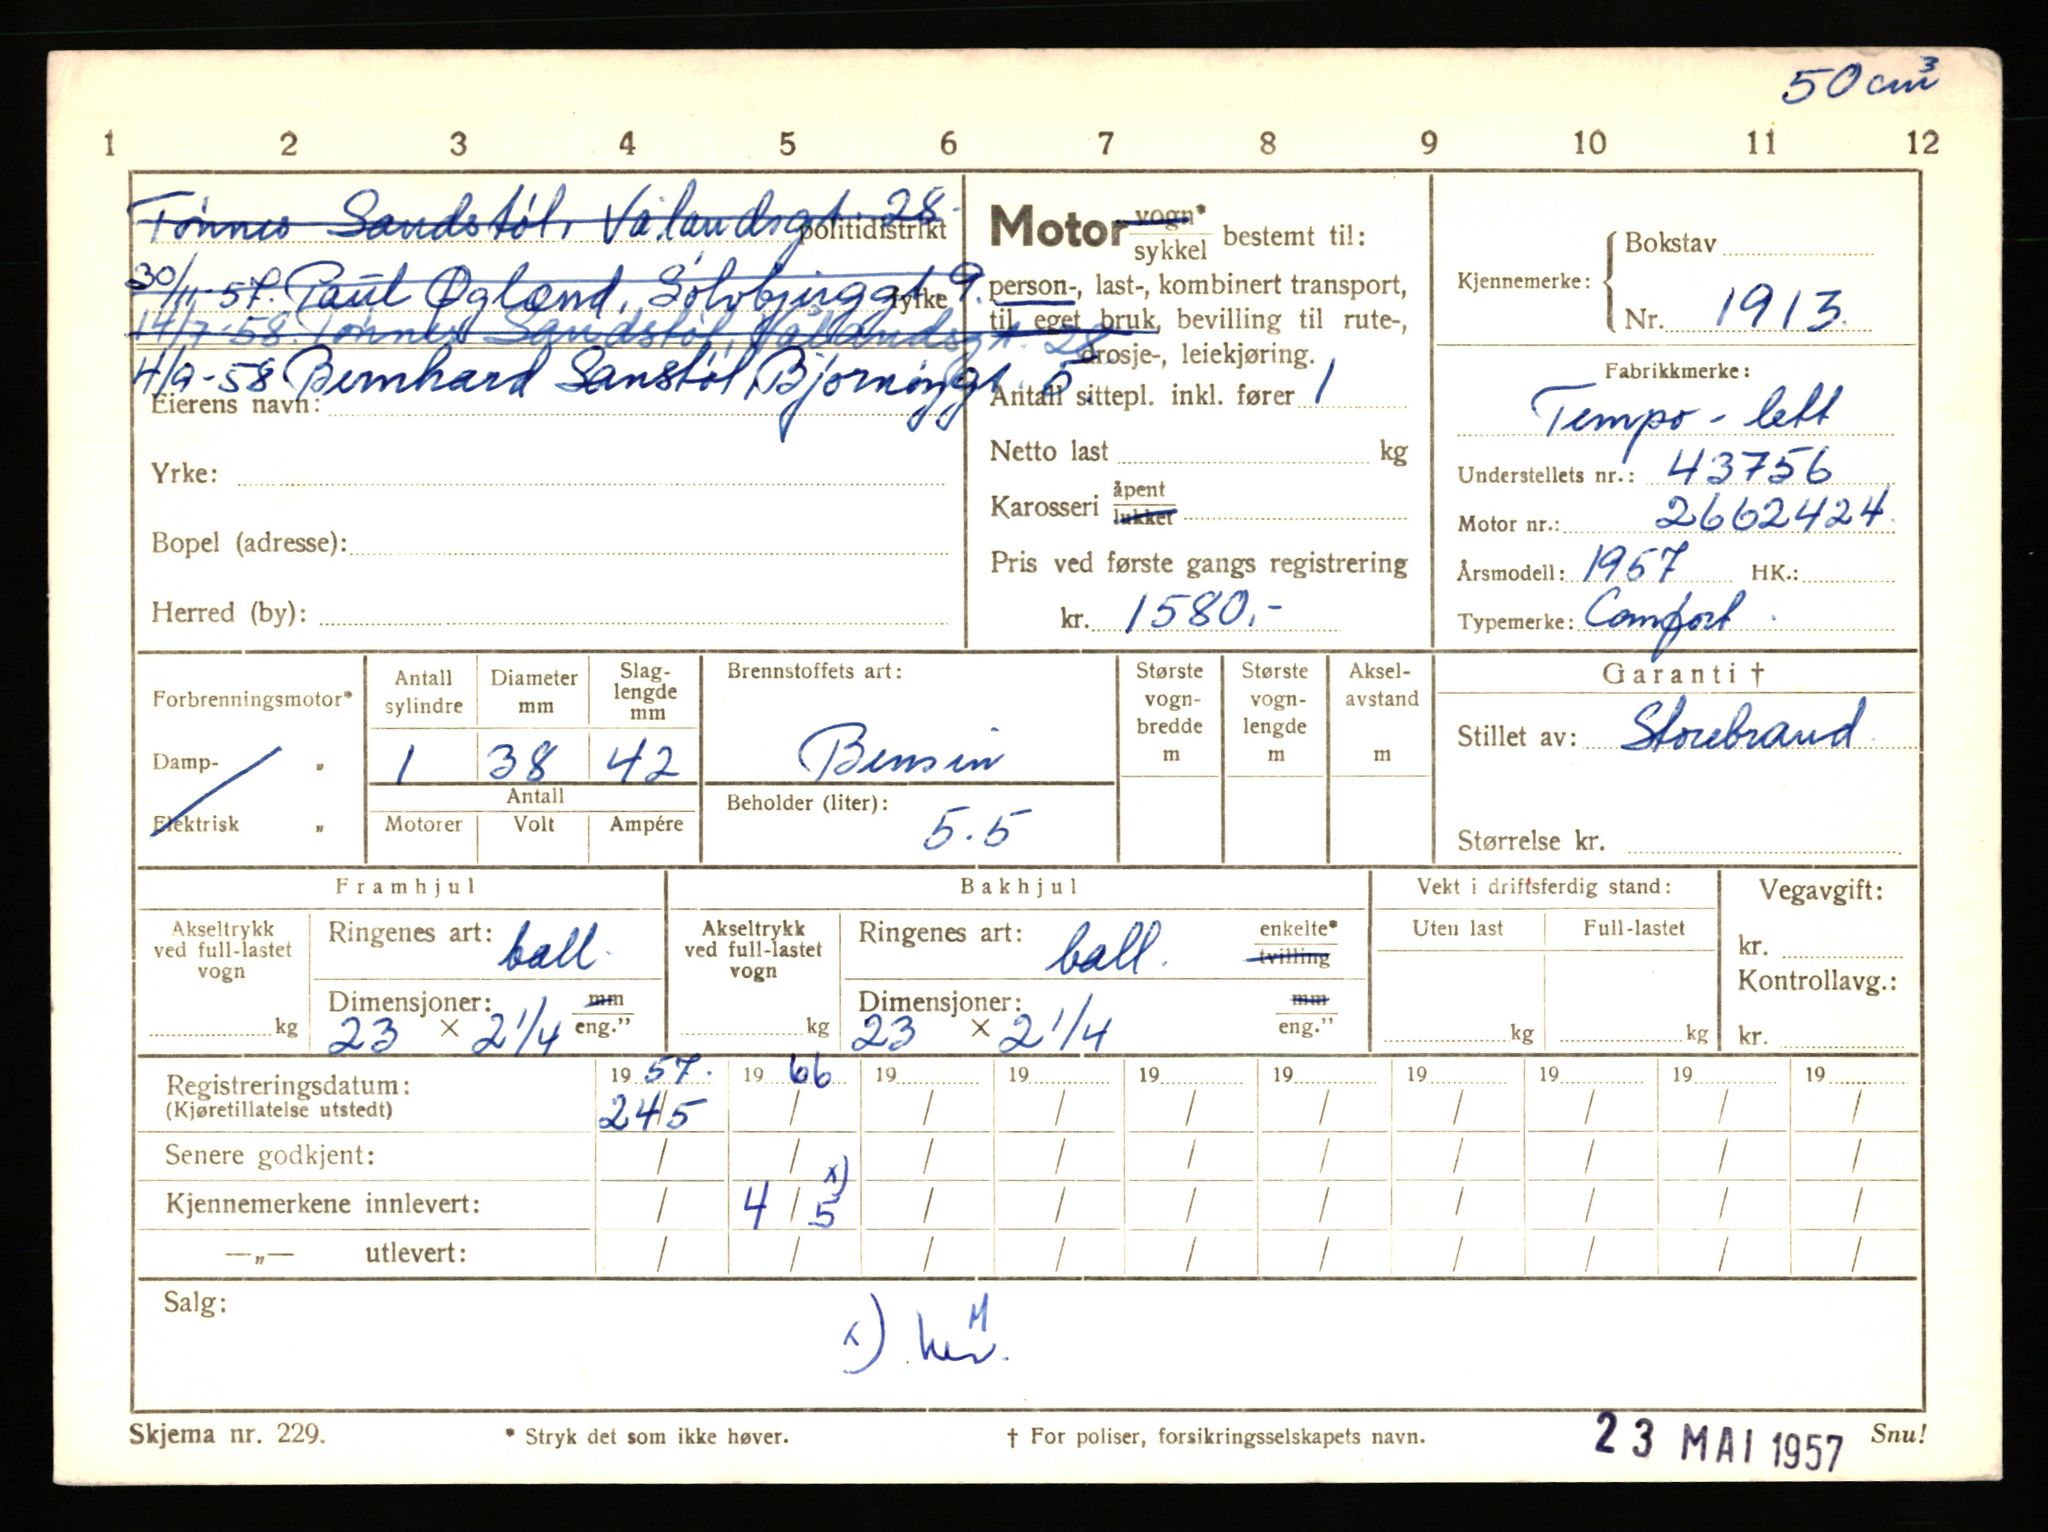 50 cm³
1 2 3 4 5 6 7 8 9 10 11 12
Tønnes Sandstøl, Vålandsgt. 28.
politidistrikt
30/11-57. Paul Øglænd, Sølvbjerggt 9.
fylke
14/7-58. Tønnes Sandstøl, Vålandsgt. 28
4/9-58 Bernhard Sanstøl, Bjørnøygt. 5.
Eierens navn:
Yrke:
Bopel (adresse):
Herred (by):
Motor vogn* sykkel bestemt til:
person-, last-, kombinert transport,
til eget bruk, bevilling til rute-,
drosje-, leiekjøring.
Antall sittepl. inkl. fører 1
Netto last kg
Karosseri åpent lukket
Pris ved første gangs registrering
kr. 1580,-
Kjennemerke: Bokstav
Nr. 1913.
Fabrikkmerke:
Tempo - lett
Understellets nr.: 43756
Motor nr.: 2662424.
Årsmodell: 1957 HK.:
Typemerke: Comfort
Forbrenningsmotor*
Damp- „
Elektrisk „
Antall sylindre
Diameter mm
Slag-lengde mm
1 38 42
Antall
Motorer Volt Ampére
Brennstoffets art:
Bensin
Beholder (liter):
5.5
Største vogn-bredde m
Største vogn-lengde m
Aksel-avstand m
Garanti †
Stillet av: Storebrand
Størrelse kr.
Framhjul
Akseltrykk ved full-lastet vogn
kg
Ringenes art: ball.
Dimensjoner: mm
23 × 2 1/4 eng.”
Bakhjul
Akseltrykk ved full-lastet vogn
kg
Ringenes art: ball. enkelte* tvilling
Dimensjoner: mm
23 × 2 1/4 eng.”
Vekt i driftsferdig stand:
Uten last Full-lastet
kg kg
Vegavgift:
kr.
Kontrollavg.:
kr.
Registreringsdatum: 19 57. 19 66 19 19 19 19 19 19 19 19
(Kjøretillatelse utstedt) 24/5 / / / / / / / / /
Senere godkjent: / / / / / / / / / /
Kjennemerkene innlevert: / 4/5 x) / / / / / / / /
—„— utlevert: / / / / / / / / / /
Salg:
x)
Skjema nr. 229.
* Stryk det som ikke høver.
† For poliser, forsikringsselskapets navn.
23 MAI 1957
Snu!